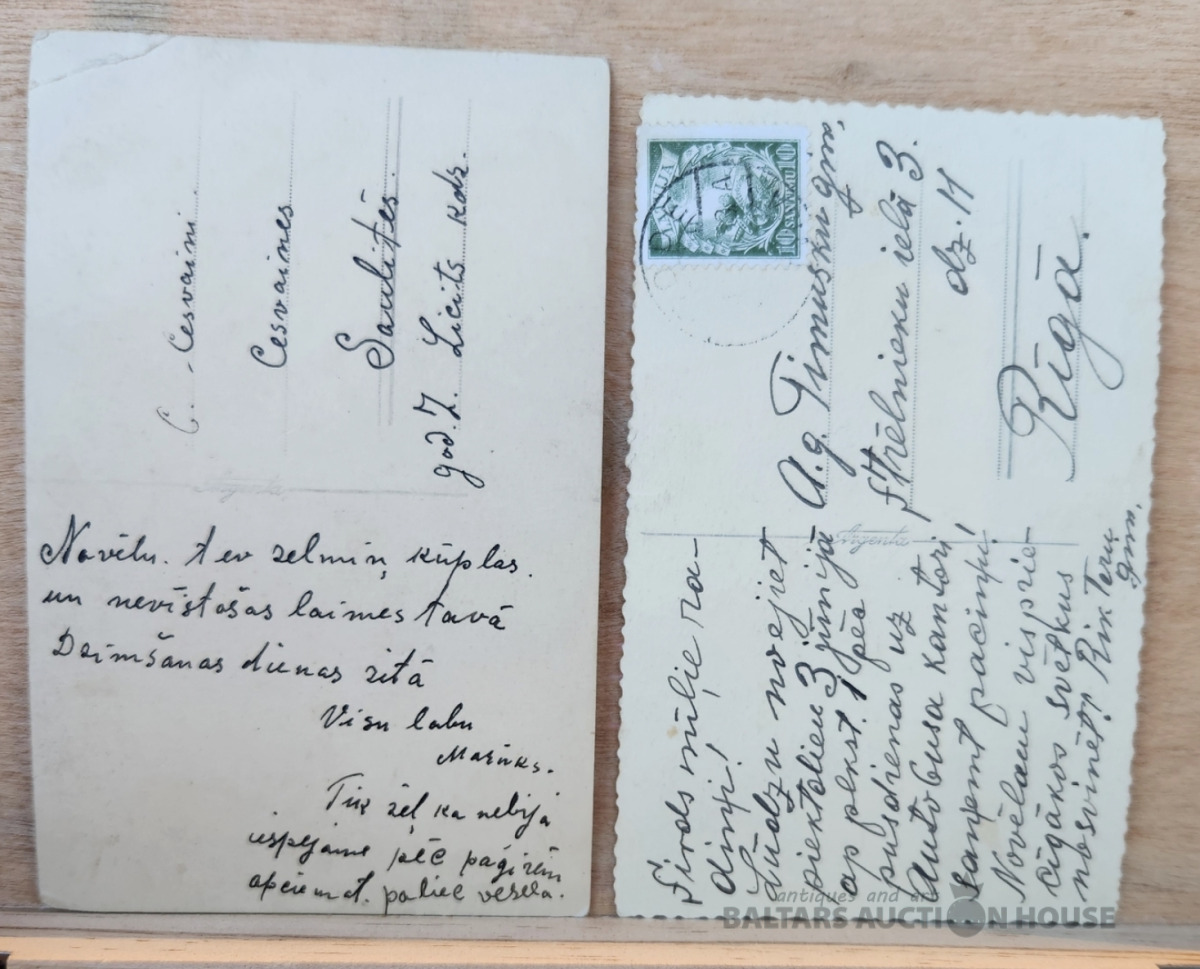 C. Cesvaini
Cesvaines
Saulītēs.
god. Z. Licits kdz.
Novēlu. tev zelmiņ kūplas.
un nevīstošas laimes tavā
Dzimšanas dienas zitā
Visu labu
Mazūks.
Tik žēl ka nebija
iespējams pēc pagirēm
apciemat. paliec vesela.
LATVIJA
10 SANTIMU 10
A.g. Timusku gim.
strēlnieku ielā 3.
dz. 11
Rīgā.
Argenta
Sirds mīļie ra-
diņi!
Lūdzu noejiet
piektdien 3 jūnijā
ap plkst. 1 pēc
pusdienas uz
Autobusa kantori
saņemt paciņu!
Novēlam vis prie-
cīgākos svētkus
nosvinēt! Rikteru
gim.
antiques and art
BALTARS AUCTION HOUSE